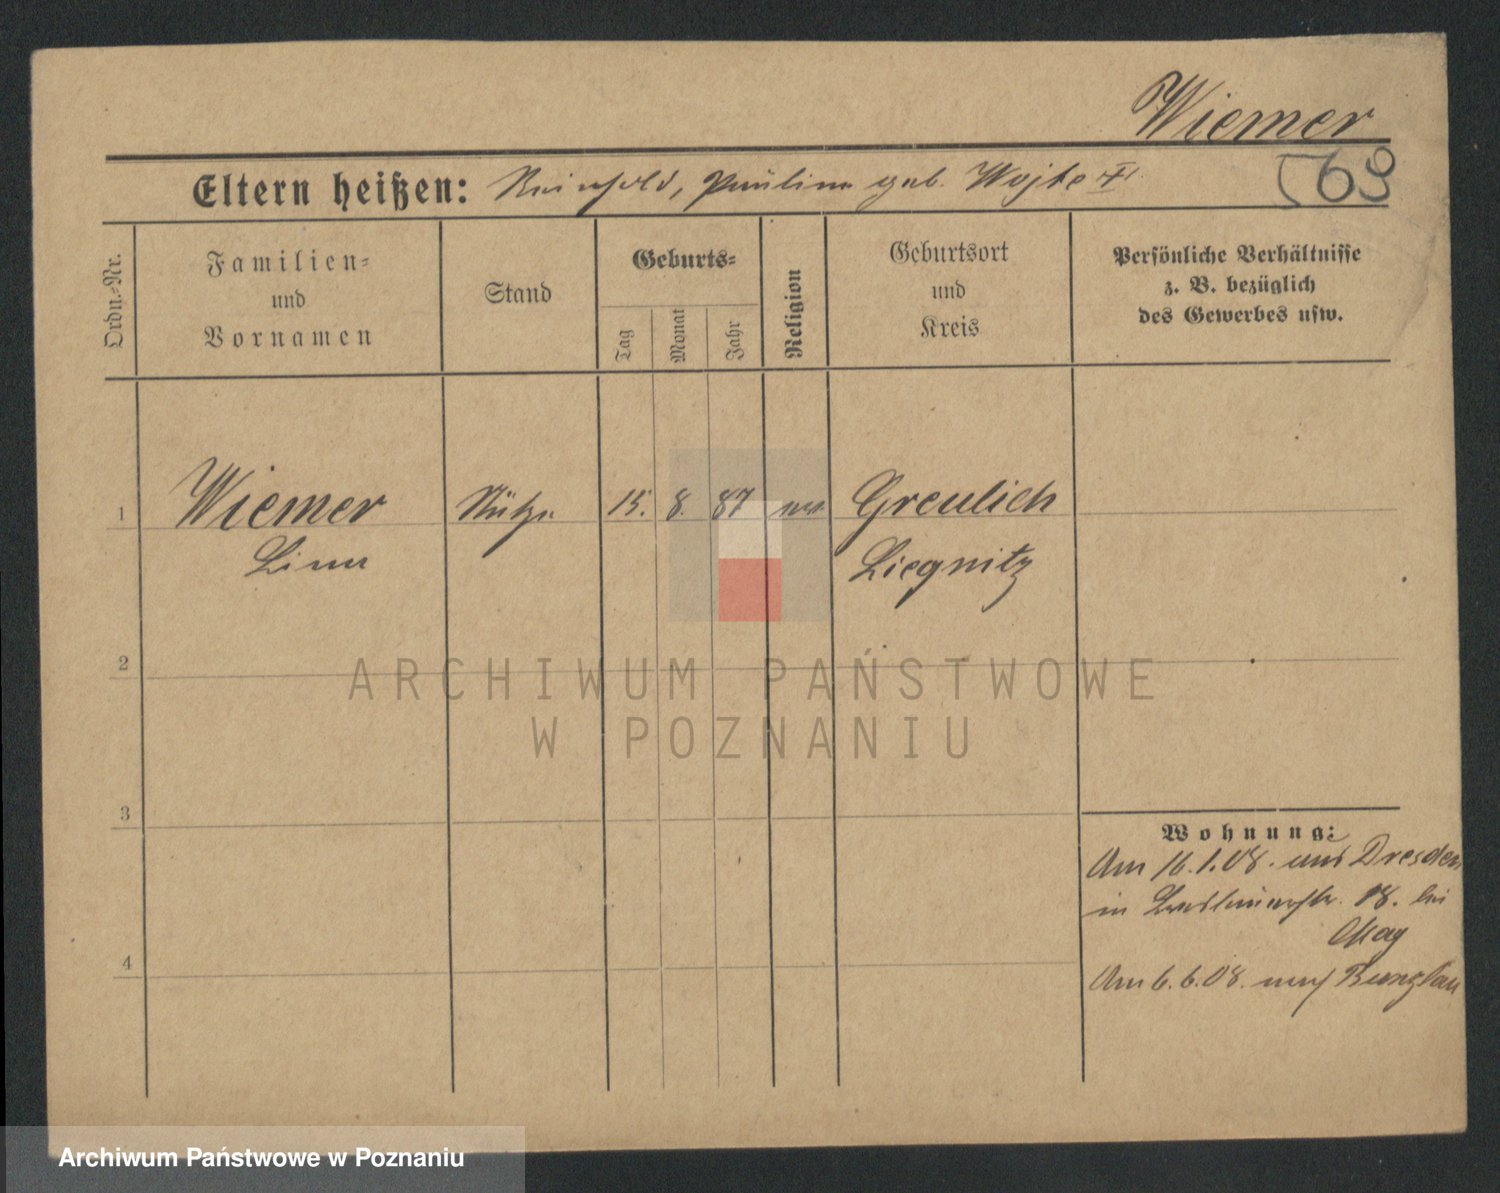 Wiemer
Eltern heißen: Reinhold, Pauline geb. Wojte
569
Ordn.-Nr.
Familien-
und
Vornamen
Stand
Geburts-
Tag
Monat
Jahr
Religion
Geburtsort
und
Kreis
Persönliche Verhältnisse
z. B. bezüglich
des Gewerbes usw.
1 Wiemer Stütze 15. 8. 87 ev. Greulich
Lina Liegnitz
2
3
4
Wohnung:
Am 16.1.08. aus Dresden
in 18. bei
May
Am 6.6.08. nach Bunzlau
ARCHIWUM PAŃSTWOWE
W POZNANIU
Archiwum Państwowe w Poznaniu